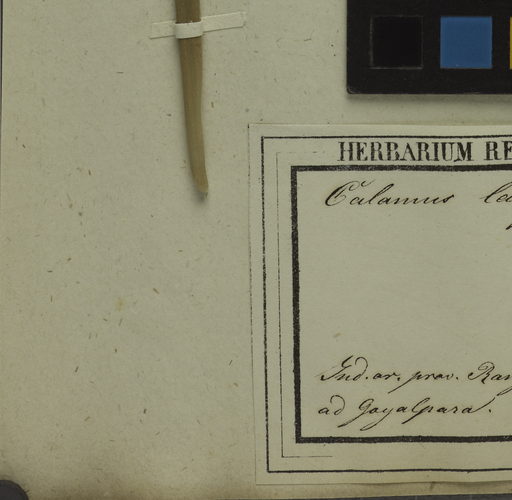 HERBARIUM RE
Calamus
Ind. or. prov. Ran
ad Goyalpara.